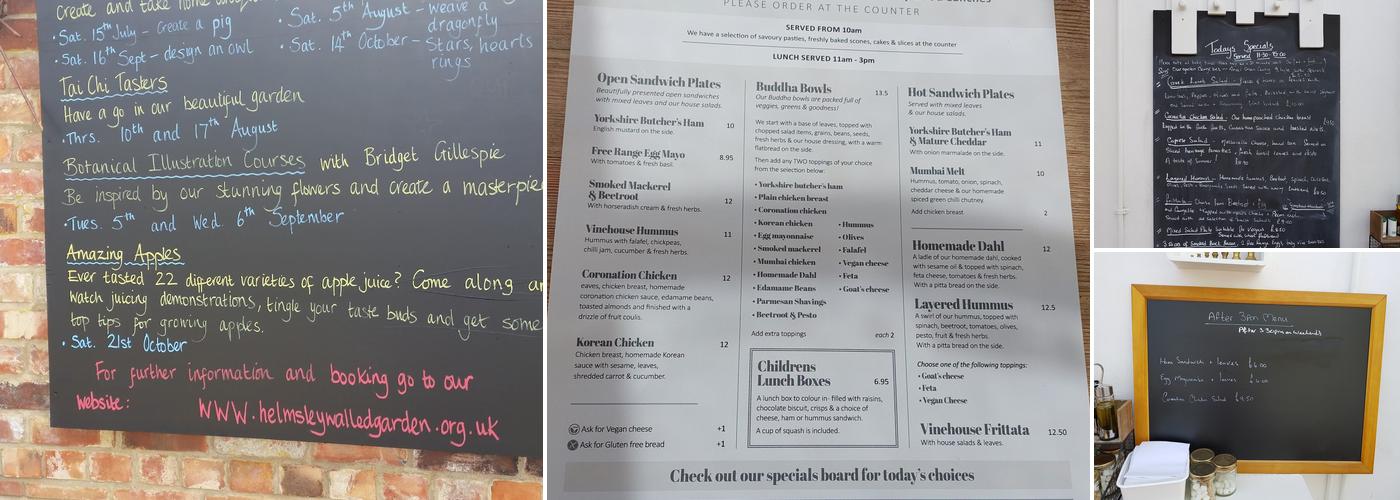 Create and take home
• Sat. 15th July - Create a pig
• Sat. 16th Sept - design an owl
• Sat. 5th August - Weave a dragonfly
• Sat. 14th October - Stars, hearts
rings
Tai Chi Tasters
Have a go in our beautiful garden
• Thrs. 10th and 17th August
Botanical Illustration Courses with Bridget Gillespie
Be inspired by our stunning flowers and create a
• Tues. 5th and Wed. 6th September
Amazing Apples
Ever tasted 22 different varieties of apple juice? Come along
Watch juicing demonstrations, tingle your taste buds and get some
top tips for growing apples.
• Sat. 21st October
For further information and booking go to our
website:
WWW.helmsleywalledgarden.org.uk
PLEASE ORDER AT THE COUNTER
SERVED FROM 10am
We have a selection of savoury pasties, freshly baked scones, cakes & slices at the counter
LUNCH SERVED 11am - 3pm
Open Sandwich Plates
Beautifully presented open sandwiches
with mixed leaves and our house salads.
Yorkshire Butcher's Ham 10
English mustard on the side.
Free Range Egg Mayo 8.95
With tomatoes & fresh basil.
Smoked Mackerel
& Beetroot 12
With horseradish cream & fresh herbs.
Vinehouse Hummus 11
Hummus with falafel, chickpeas,
chilli jam, cucumber & fresh herbs.
Coronation Chicken 12
eaves, chicken breast, homemade
coronation chicken sauce, edamame beans,
toasted almonds and finished with a
drizzle of fruit coulis.
Korean Chicken 12
Chicken breast, homemade Korean
sauce with sesame, leaves,
shredded carrot & cucumber.
Ask for Vegan cheese +1
Ask for Gluten free bread +1
Buddha Bowls 13.5
Our Buddha bowls are packed full of
veggies, greens & goodness!
We start with a base of leaves, topped with
chopped salad items, grains, beans, seeds,
fresh herbs & our house dressing, with a warm
flatbread on the side.
Then add any TWO toppings of your choice
from the selection below:
• Yorkshire butcher's ham
• Plain chicken breast
• Coronation chicken
• Korean chicken
• Egg mayonnaise
• Smoked mackerel
• Mumbai chicken
• Homemade Dahl
• Edamame Beans
• Parmesan Shavings
• Beetroot & Pesto
• Hummus
• Olives
• Falafel
• Vegan cheese
• Feta
• Goat's cheese
Add extra toppings each 2
Childrens
Lunch Boxes 6.95
A lunch box to colour in- filled with raisins,
chocolate biscuit, crisps & a choice of
cheese, ham or hummus sandwich.
A cup of squash is included.
Hot Sandwich Plates
Served with mixed leaves
& our house salads.
Yorkshire Butcher's Ham
& Mature Cheddar 11
With onion marmalade on the side.
Mumbai Melt 10
Hummus, tomato, onion, spinach,
cheddar cheese & our homemade
spiced green chilli chutney.
Add chicken breast 2
Homemade Dahl 12
A ladle of our homemade dahl, cooked
with sesame oil & topped with spinach,
feta cheese, tomatoes & fresh herbs.
With a pitta bread on the side.
Layered Hummus 12.5
A swirl of our hummus, topped with
spinach, beetroot, tomatoes, olives,
pesto, fruit & fresh herbs.
With a pitta bread on the side.
Choose one of the following toppings:
• Goat's cheese
• Feta
• Vegan Cheese
Vinehouse Frittata 12.50
With house salads & leaves.
Check out our specials board for today's choices
Todays Specials
Served 11:30-15:00
Greek Lamb Salad
Coronation Chicken Salad - Our homepoached chicken breast
Caprese Salad - Mozzarella cheese,
A taste of Summer!
Layered Hummus - Homemade hummus, Beetroot, Spinach,
Mixed Salad Plate
After 3pm Menu
After 3:30pm on weekends
Ham Sandwich + leaves £6.00
Egg Mayonnaise + leaves £6.00
Coronation Chicken Salad £9.50